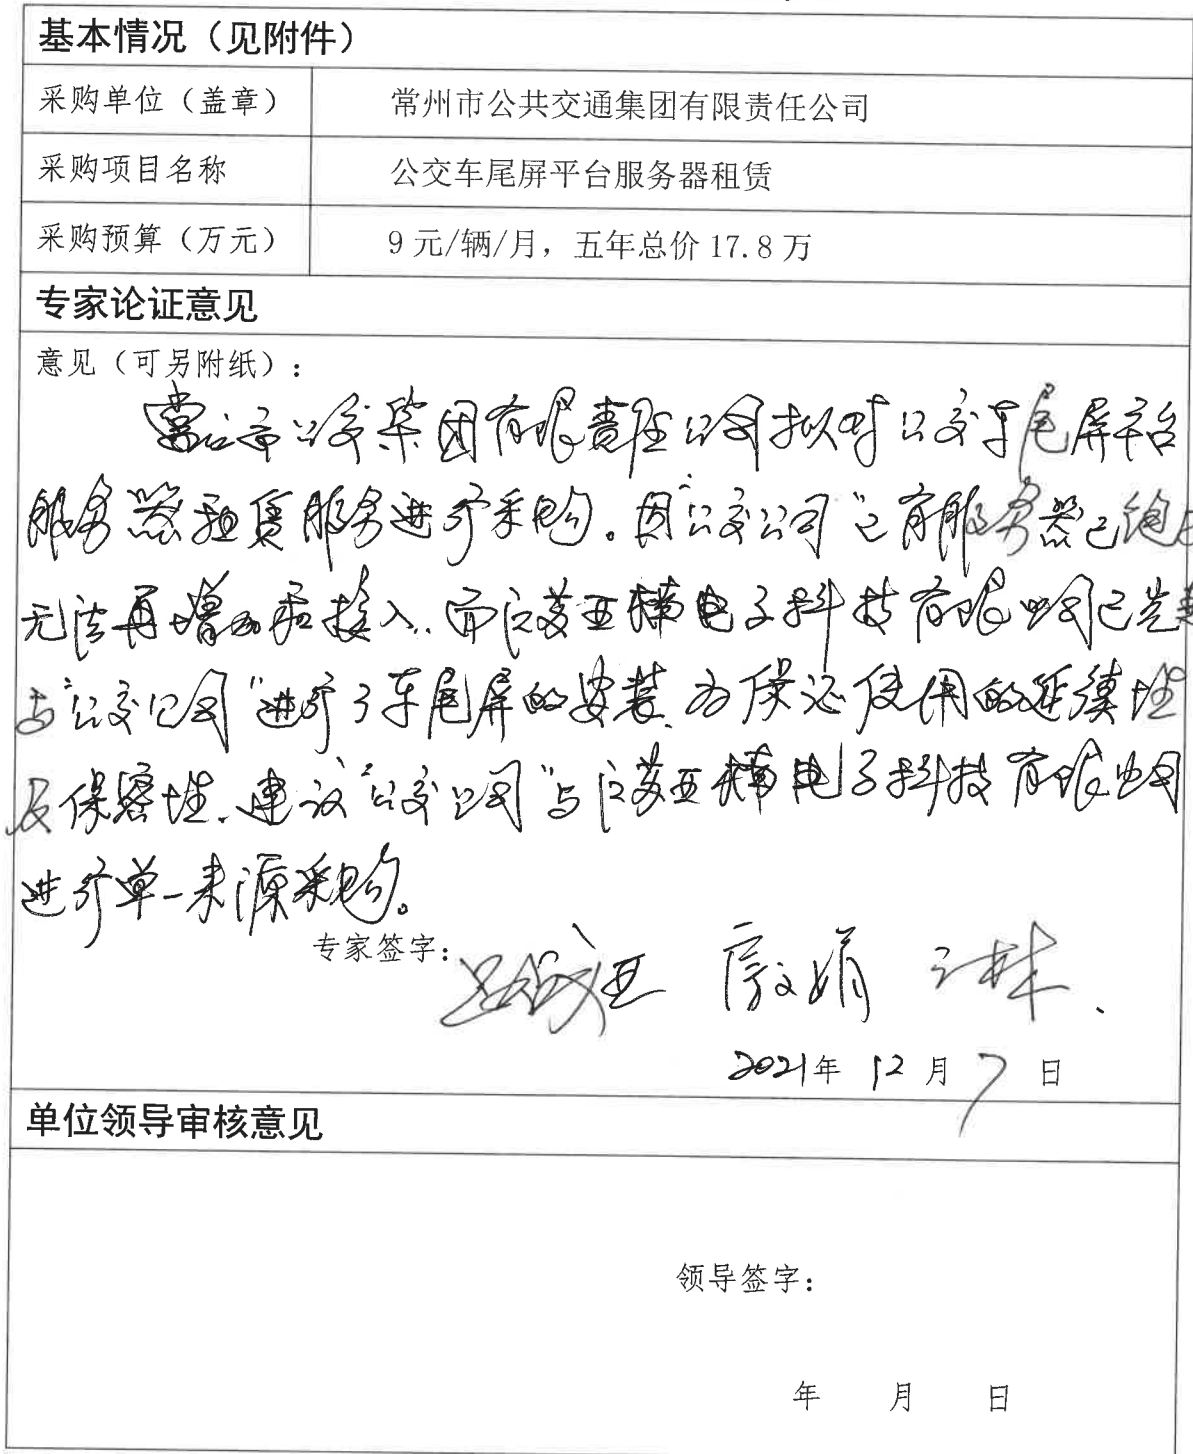 基本情况（见附件）
采购单位（盖章） 常州市公共交通集团有限责任公司
采购项目名称 公交车尾屏平台服务器租赁
采购预算（万元） 9元/辆/月，五年总价17.8万
专家论证意见
意见（可另附纸）：
常州市公交集团有限责任公司拟对公交车尾屏平台
服务器租赁服务进行采购。因“公交公司”已有服务器已饱
无法再增加和接入，而江苏亚楠电子科技有限公司已先
与“公交公司”进行了车尾屏的安装，为保证使用的延续性
及保密性，建议“公交公司”与江苏亚楠电子科技有限公司
进行单一来源采购。
专家签字：
2021年12月7日
单位领导审核意见
领导签字：
年 月 日